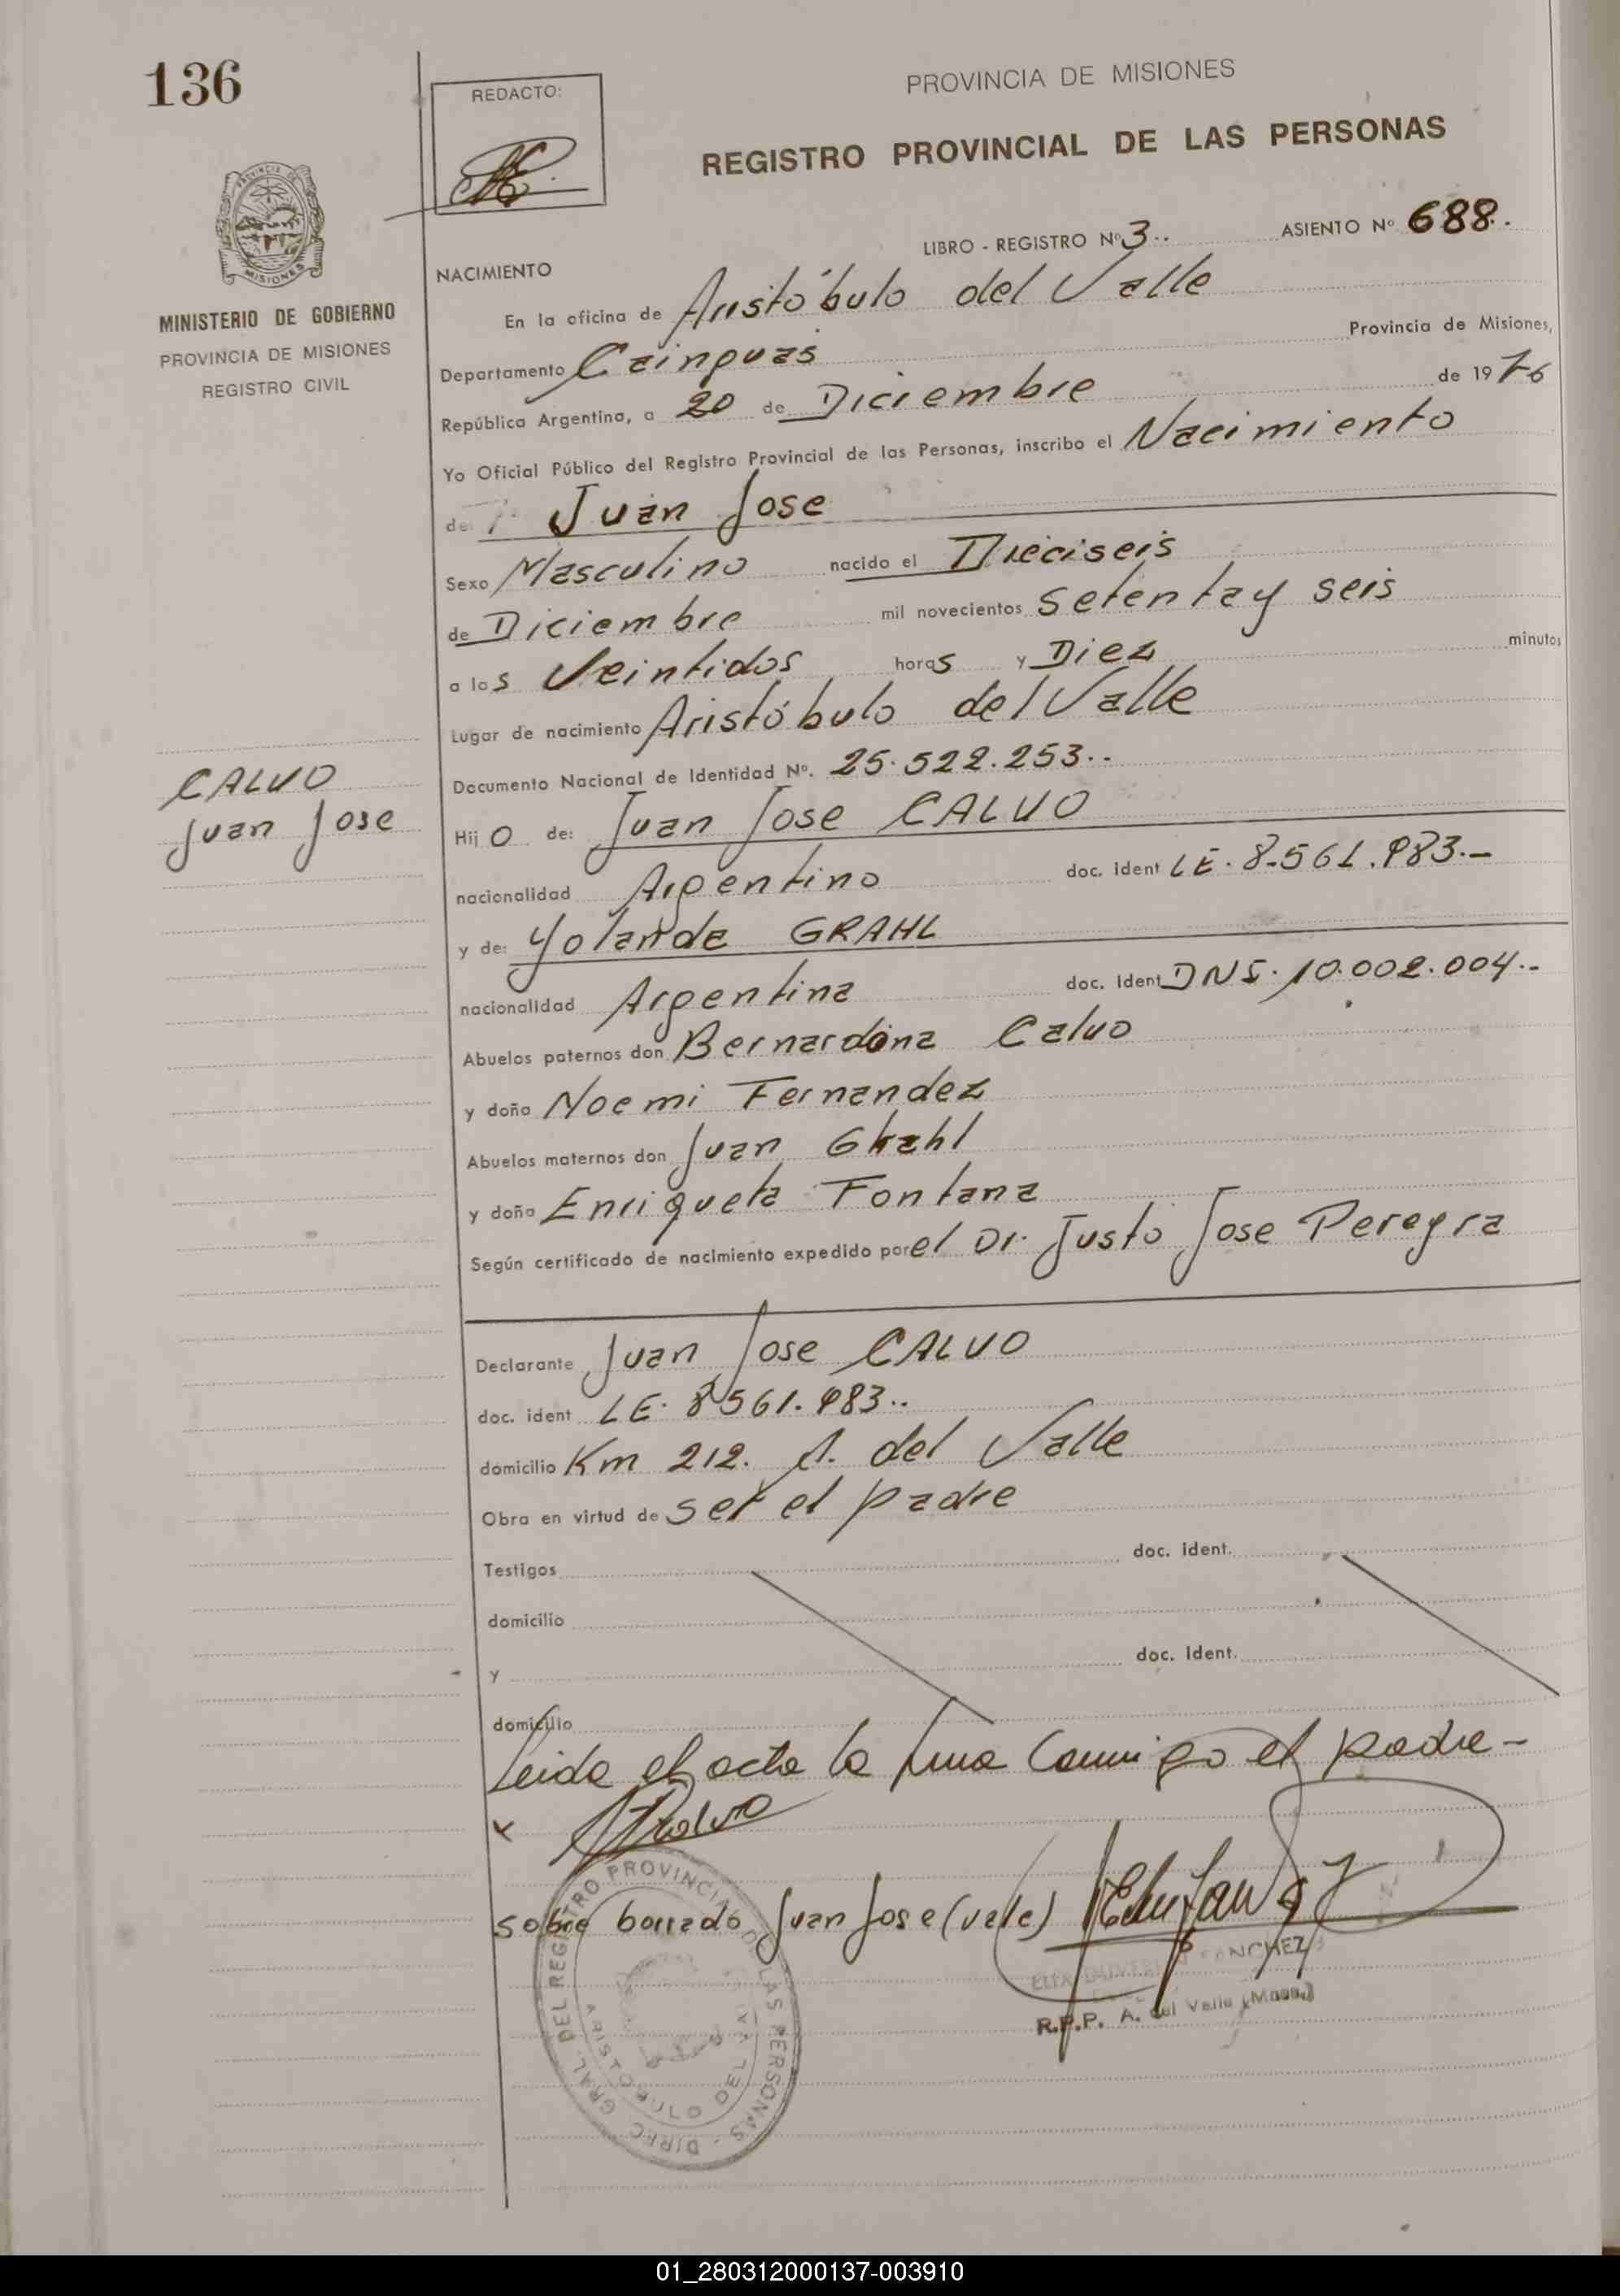 136
REDACTO:
PROVINCIA DE MISIONES
REGISTRO PROVINCIAL DE LAS PERSONAS
LIBRO - REGISTRO Nº 3.. ASIENTO Nº 688..
PROVINCIA DE MISIONES
MINISTERIO DE GOBIERNO
PROVINCIA DE MISIONES
REGISTRO CIVIL
NACIMIENTO
En la oficina de Aristóbulo del Valle
Departamento Cainguas Provincia de Misiones,
República Argentina, a 20 de Diciembre de 1976
Yo Oficial Público del Registro Provincial de las Personas, inscribo el Nacimiento
de: Juan Jose
Sexo Masculino nacido el Dieciseis
de Diciembre mil novecientos setenta y seis
a las Veintidos horas y Diez minutos
Lugar de nacimiento Aristóbulo del Valle
Documento Nacional de Identidad Nº. 25.522.253..
CALVO
Juan Jose
Hijo de: Juan Jose CALVO
nacionalidad Argentino doc. ident LE. 8.561.983.-
y de: Yolanda GRAHL
nacionalidad Argentina doc. Ident DNI. 10.002.004.-
Abuelos paternos don Bernardona Calvo
y doña Noemi Fernandez
Abuelos maternos don Juan Grahl
y doña Enriqueta Fontana
Según certificado de nacimiento expedido por el Dr. Justo Jose Pereyra
Declarante Juan Jose CALVO
doc. ident LE. 8561.983..
domicilio Km 212. A. del Valle
Obra en virtud de ser el padre
Testigos doc. ident.
domicilio
y doc. Ident.
domicilio
Leida el acta la firma conmigo el padre-
x
sobre borrado Juan Jose (vale)
SANCHEZ
R.P.P. A. del Valle (Mnes.)
DIREC. GRAL. DEL REGISTRO PROVINCIAL DE LAS PERSONAS
ARISTOBULO DEL VALLE
01_280312000137-003910